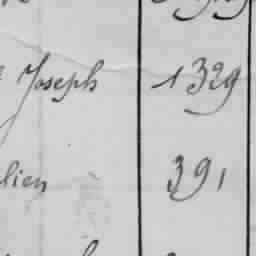 Joseph 1329
lien 391